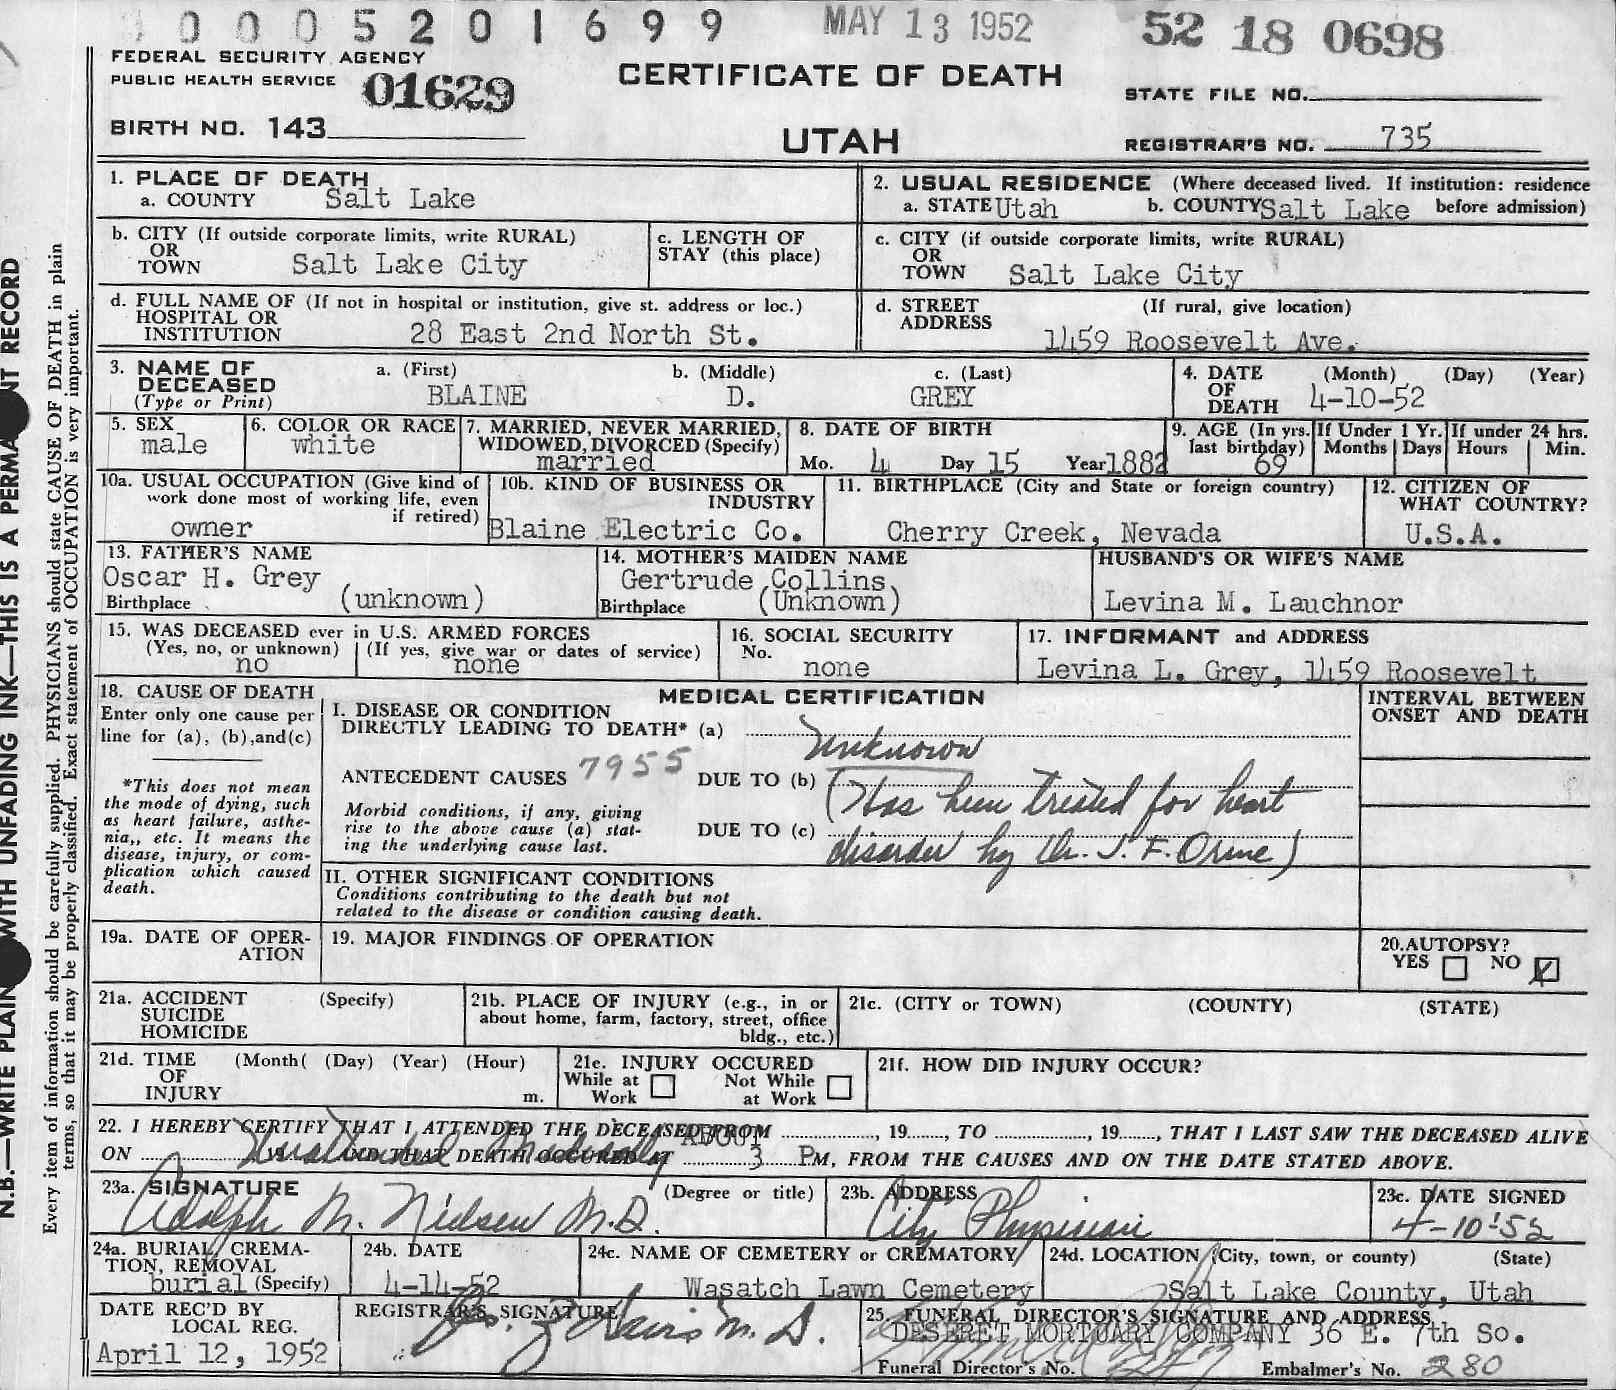 0005201699 MAY 13 1952 52 18 0698
FEDERAL SECURITY AGENCY
PUBLIC HEALTH SERVICE 01629
CERTIFICATE OF DEATH
STATE FILE NO.
BIRTH NO. 143
UTAH
REGISTRAR'S NO. 735
1. PLACE OF DEATH
a. COUNTY Salt Lake
2. USUAL RESIDENCE (Where deceased lived. If institution: residence
a. STATE Utah b. COUNTY Salt Lake before admission)
b. CITY (If outside corporate limits, write RURAL)
OR
TOWN Salt Lake City
c. LENGTH OF
STAY (this place)
c. CITY (if outside corporate limits, write RURAL)
OR
TOWN Salt Lake City
d. FULL NAME OF (If not in hospital or institution, give st. address or loc.)
HOSPITAL OR
INSTITUTION 28 East 2nd North St.
d. STREET (If rural, give location)
ADDRESS
1459 Roosevelt Ave.
3. NAME OF
DECEASED
(Type or Print)
a. (First) b. (Middle) c. (Last)
BLAINE D. GREY
4. DATE (Month) (Day) (Year)
OF
DEATH 4-10-52
5. SEX
male
6. COLOR OR RACE
white
7. MARRIED, NEVER MARRIED,
WIDOWED, DIVORCED (Specify)
married
8. DATE OF BIRTH
Mo. 4 Day 15 Year 1882
9. AGE (In yrs.
last birthday)
69
If Under 1 Yr.
Months Days
If under 24 hrs.
Hours Min.
10a. USUAL OCCUPATION (Give kind of
work done most of working life, even
if retired)
owner
10b. KIND OF BUSINESS OR
INDUSTRY
Blaine Electric Co.
11. BIRTHPLACE (City and State or foreign country)
Cherry Creek, Nevada
12. CITIZEN OF
WHAT COUNTRY?
U.S.A.
13. FATHER'S NAME
Oscar H. Grey
Birthplace (unknown)
14. MOTHER'S MAIDEN NAME
Gertrude Collins
Birthplace (Unknown)
HUSBAND'S OR WIFE'S NAME
Levina M. Lauchnor
15. WAS DECEASED ever in U.S. ARMED FORCES
(Yes, no, or unknown) (If yes, give war or dates of service)
no none
16. SOCIAL SECURITY
No.
none
17. INFORMANT and ADDRESS
Levina L. Grey, 1459 Roosevelt
18. CAUSE OF DEATH
Enter only one cause per
line for (a), (b), and (c)
*This does not mean
the mode of dying, such
as heart failure, asthe-
nia,, etc. It means the
disease, injury, or com-
plication which caused
death.
MEDICAL CERTIFICATION
I. DISEASE OR CONDITION
DIRECTLY LEADING TO DEATH* (a) Unknown
ANTECEDENT CAUSES 7955 DUE TO (b) (Has been treated for heart
Morbid conditions, if any, giving
rise to the above cause (a) stat-
ing the underlying cause last.
DUE TO (c) disorder by Dr. J. F. Orme)
II. OTHER SIGNIFICANT CONDITIONS
Conditions contributing to the death but not
related to the disease or condition causing death.
INTERVAL BETWEEN
ONSET AND DEATH
19a. DATE OF OPER-
ATION
19. MAJOR FINDINGS OF OPERATION
20. AUTOPSY?
YES NO
21a. ACCIDENT (Specify)
SUICIDE
HOMICIDE
21b. PLACE OF INJURY (e.g., in or
about home, farm, factory, street, office
bldg., etc.)
21c. (CITY or TOWN) (COUNTY) (STATE)
21d. TIME (Month( (Day) (Year) (Hour)
OF
INJURY m.
21e. INJURY OCCURED
While at Not While
Work at Work
21f. HOW DID INJURY OCCUR?
22. I HEREBY CERTIFY THAT I ATTENDED THE DECEASED FROM ABOUT , 19 , TO , 19 , THAT I LAST SAW THE DECEASED ALIVE
Unattended Medically
ON 19 AND THAT DEATH OCCURED AT 3 P M, FROM THE CAUSES AND ON THE DATE STATED ABOVE.
23a. SIGNATURE (Degree or title)
Adolph M. Nielsen M.D.
23b. ADDRESS
City Physician
23c. DATE SIGNED
4-10-'52
24a. BURIAL, CREMA-
TION, REMOVAL
burial (Specify)
24b. DATE
4-14-52
24c. NAME OF CEMETERY or CREMATORY
Wasatch Lawn Cemetery
24d. LOCATION (City, town, or county) (State)
Salt Lake County, Utah
DATE REC'D BY
LOCAL REG.
April 12, 1952
REGISTRAR'S SIGNATURE
M.D.
25. FUNERAL DIRECTOR'S SIGNATURE AND ADDRESS
DESERET MORTUARY COMPANY 36 E. 7th So.
Funeral Director's No. Embalmer's No. 280
N.B.—WRITE PLAIN WITH UNFADING INK—THIS IS A PERMA NT RECORD
Every item of information should be carefully supplied. PHYSICIANS should state CAUSE OF DEATH in plain
terms, so that it may be properly classified. Exact statement of OCCUPATION is very important.